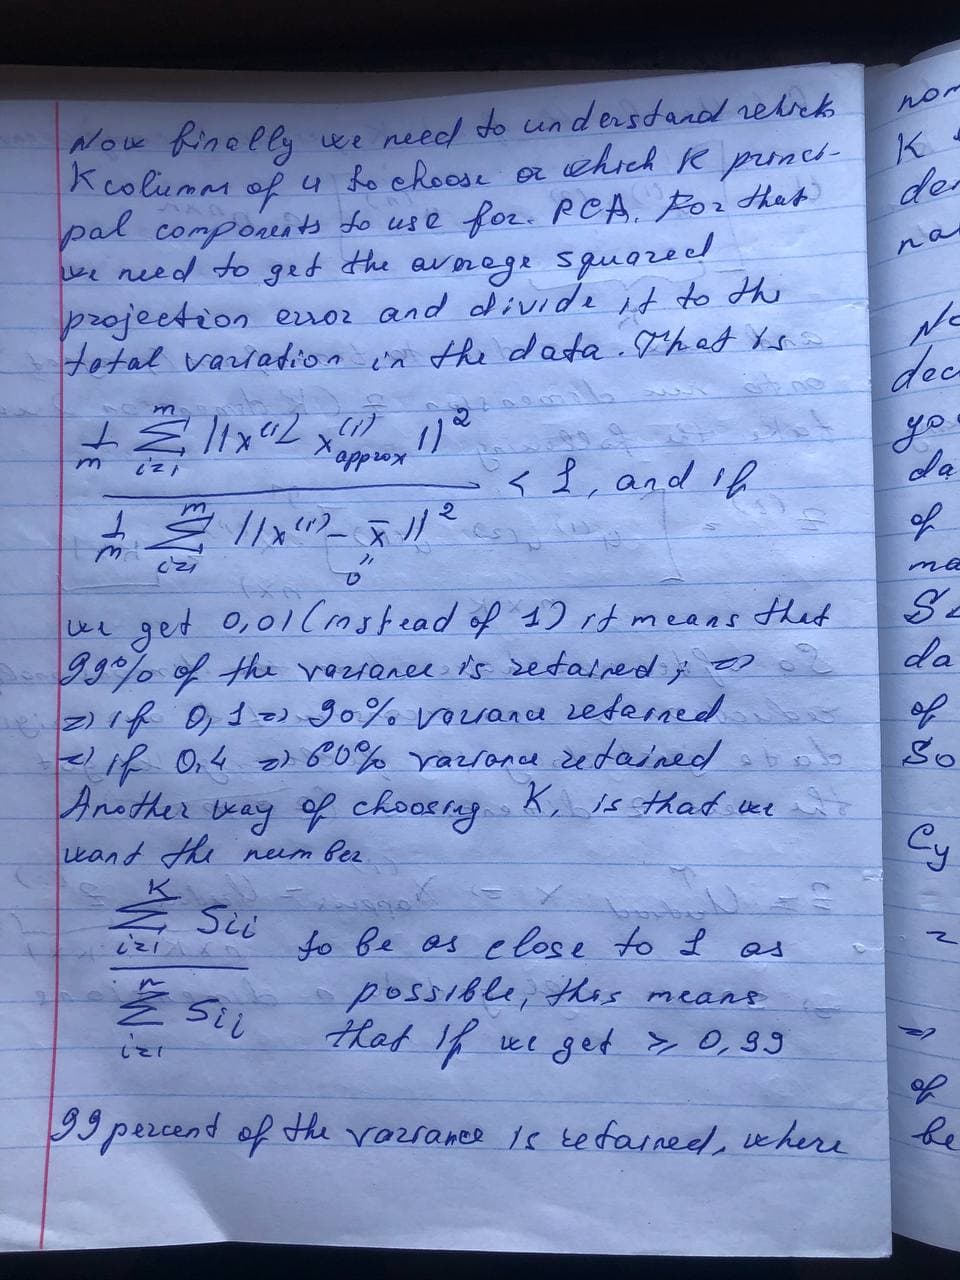 Now finally we need to understand which
K columns of U to choose or which K princi-
pal components to use for PCA. For that
we need to get the average squared
projection error and divide it to the
total variation in the data. That is
1/m Σ_{i=1}^{m} ||x^{(i)} - x_{approx}^{(i)}||^2
< 1, and if
1/m Σ_{i=1}^{m} ||x^{(i)} - x̄||^2
" 0
we get 0,01 (instead of 1) it means that
99% of the variance is retained; =>
=> if 0,1 => 90% variance retained
=> if 0,4 => 60% variance retained
Another way of choosing K, is that we
want the number
Σ_{i=1}^{K} Sii
to be as close to 1 as
Σ_{i=1}^{n} Sii
possible, this means
that if we get ⩾ 0,99
99 percent of the variance is retained, where
K
of
da
of
So
of
So
=
=>
of
be